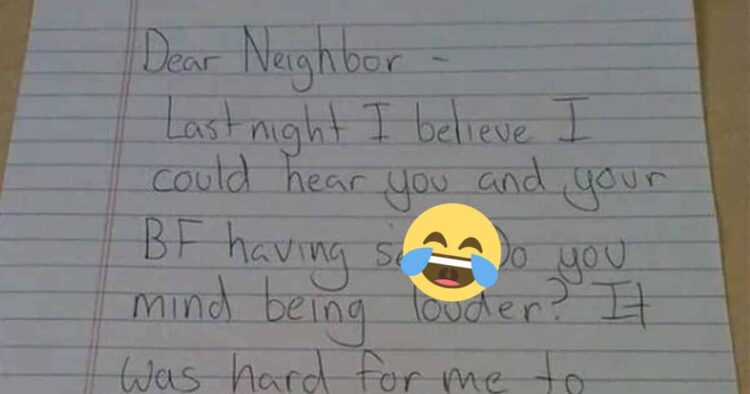 Dear Neighbor -
Last night I believe I
could hear you and your
BF having Do you
mind being louder? It
was hard for me to